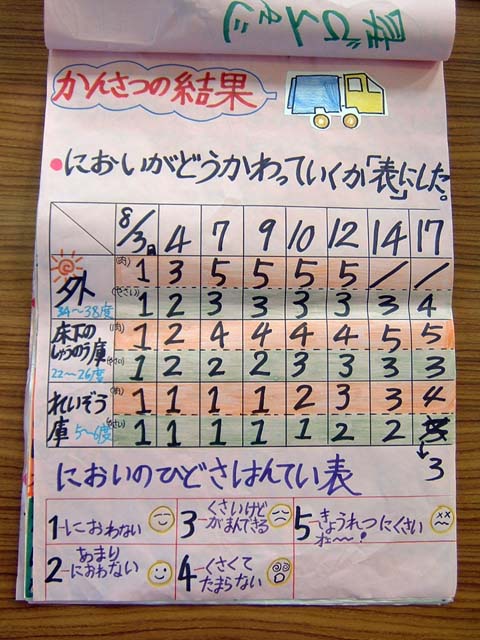 かんさつの結果
•においがどうかわっていくか「表」にした。
8/3日 4 7 9 10 12 14 17
外 34〜38度 (肉) 1 3 5 5 5 5 / /
(やさい) 1 2 3 3 3 3 3 4
床下のしゅうのう庫 22〜26度 (肉) 1 2 4 4 4 4 5 5
(やさい) 1 2 2 2 3 3 3 3
れいぞう庫 5〜6度 (肉) 1 1 1 1 2 3 3 4
(やさい) 1 1 1 1 1 2 2
3
においのひどさはんてい表
1-におわない
2-あまりにおわない
3-くさいけどがまんできる
4-くさくてたまらない
5-きょうれつにくさいね〜〜!